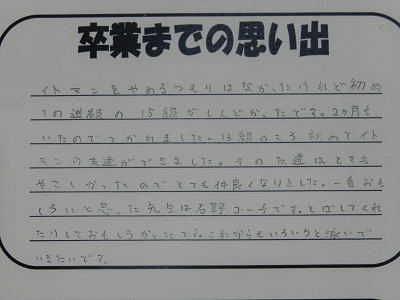 卒業までの思い出
イトマンをやめるつもりはなかったけれど初め
ての進級の15級がしんどかったです。2ヶ月も
いたのでつかれました。13級のころ初めてイト
マンの友達ができました。その友達はとても
やさしかったのでとても仲良くなりました。一番おも
しろいと思った先生は石野コーチです。とばしてくれ
たりしておもしろかったです。これからもいろいろと泳いで
いきたいです。